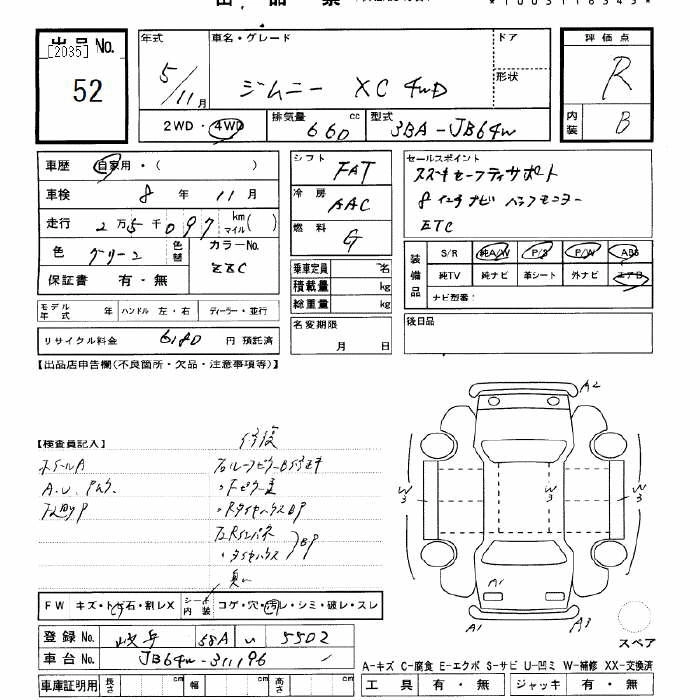 出品票
出品No.
[2035]
52
年式
5/11月
車名・グレード
ジムニー XC 4WD
ドア
形状
評価点
R
内装
B
2WD・4WD
排気量
660 cc
型式
3BA-JB64W
車歴 自家用・( )
車検 8年11月
走行 2万5千097 km マイル( )
色 グリーン 色替
カラーNo.
ZZC
保証書 有・無
モデル年式 年 ハンドル 左・右 ディーラー・並行
リサイクル料金 6180 円 預託済
シフト
FAT
冷房
AAC
燃料
G
乗車定員 名
積載量 kg
総重量 kg
名変期限
月 日
セールスポイント
スズキセーフティサポート
8インチナビ バックモニター
ETC
装備品
S/R 純A/W P/S P/W ABS
純TV 純ナビ 革シート 外ナビ エアB
ナビ型番:
後日品
【出品店申告欄(不良箇所・欠品・注意事項等)】
【検査員記入】
修復
ホイールA
A2
W3
W3
W3
A1
A1
A3
スペア
FW キズ・トビ石・割レX
シート内装 コゲ・穴・汚レ・シミ・破レ・スレ
登録No. 岐阜 58A い 5502
車台No. JB64W-311196
車庫証明用 長さ cm 幅 cm 高さ cm
A-キズ C-腐食 E-エクボ S-サビ U-凹ミ W-補修 XX-交換済
工具 有・無 ジャッキ 有・無